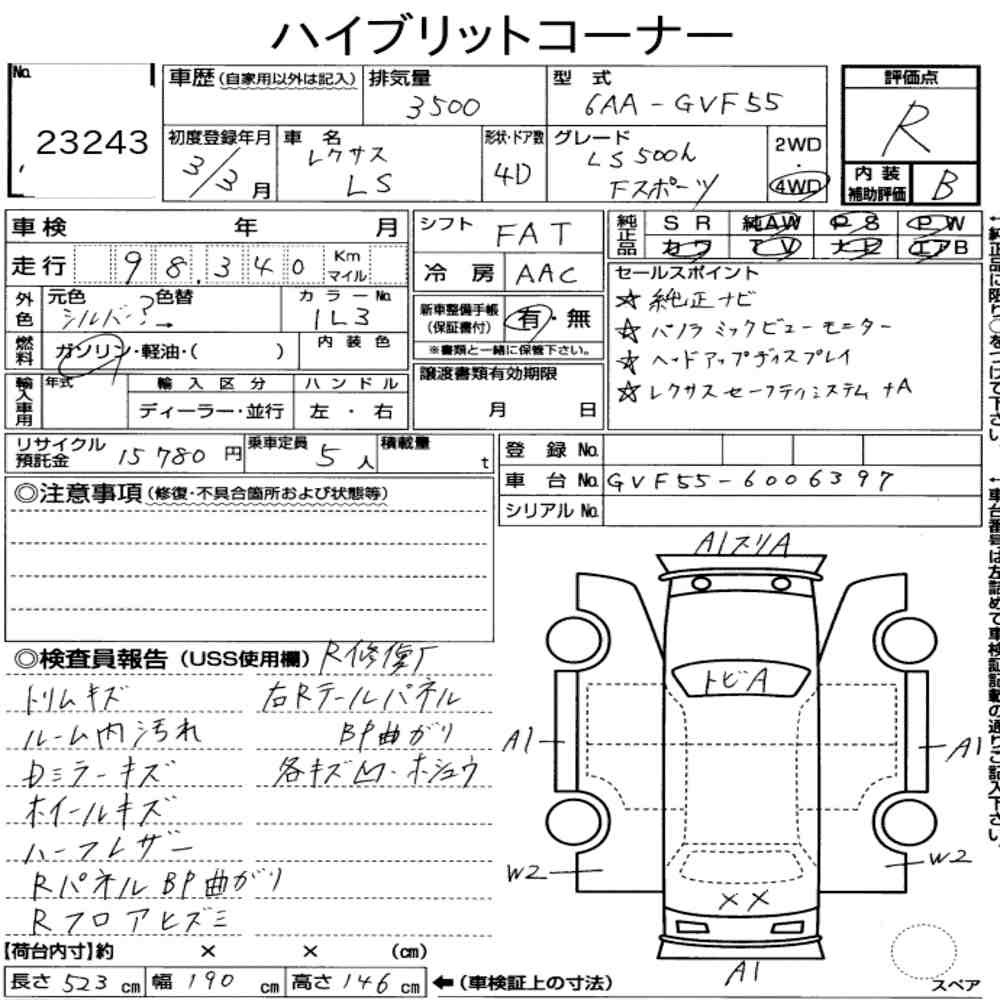 ハイブリットコーナー
No. 23243
車歴（自家用以外は記入）
排気量 3500
型式 6AA-GVF55
評価点 R
初度登録年月 3/3月
車名 レクサス LS
形状・ドア数 4D
グレード LS500h Fスポーツ
2WD・4WD
内装補助評価 B
車検 年 月
走行 98,340 Km マイル
シフト FAT
冷房 AAC
純正品 SR 純AW PS PW
カワ TV ナビ エアB
外色 元色 シルバー 色替 ?→ カラーNo. 1L3
燃料 ガソリン・軽油・( ) 内装色
新車整備手帳（保証書付） 有・無
※書類と一緒に保管下さい。
セールスポイント
☆ 純正ナビ
☆ パノラミックビューモニター
☆ ヘッドアップディスプレイ
☆ レクサスセーフティシステム+A
輸入車用 年式 輸入区分 ハンドル
ディーラー・並行 左・右
譲渡書類有効期限
月 日
リサイクル預託金 15780円
乗車定員 5人
積載量 t
登録No.
車台No. GVF55-6006397
シリアルNo.
◎注意事項（修復・不具合箇所および状態等）
◎検査員報告（USS使用欄） R修復歴
トリムキズ 右Rテールパネル
ルーム内汚れ BP曲がり
Dミラーキズ 各キズ凹・ホシュウ
ホイールキズ
ハーフレザー
RパネルBP曲がり
Rフロアヒズミ
A1スリA
トビA
A1
A1
W2
W2
××
A1
スペア
【荷台内寸】約 × × (cm)
長さ 523 cm 幅 190 cm 高さ 146 cm ←（車検証上の寸法）
←純正品に限り○をつけて下さい。
←車台番号は左詰めで車検証記載の通りご記入下さい。